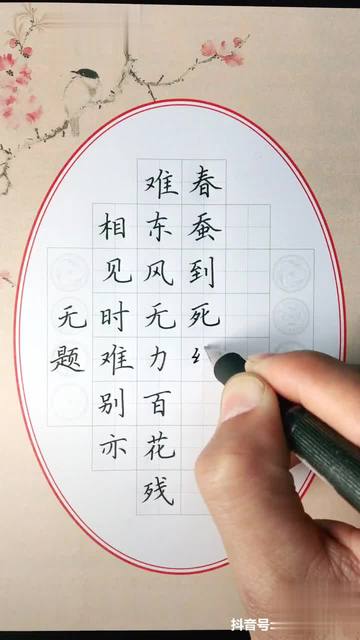 无题
相见时难别亦
难东风无力百花残
春蚕到死
抖音号: